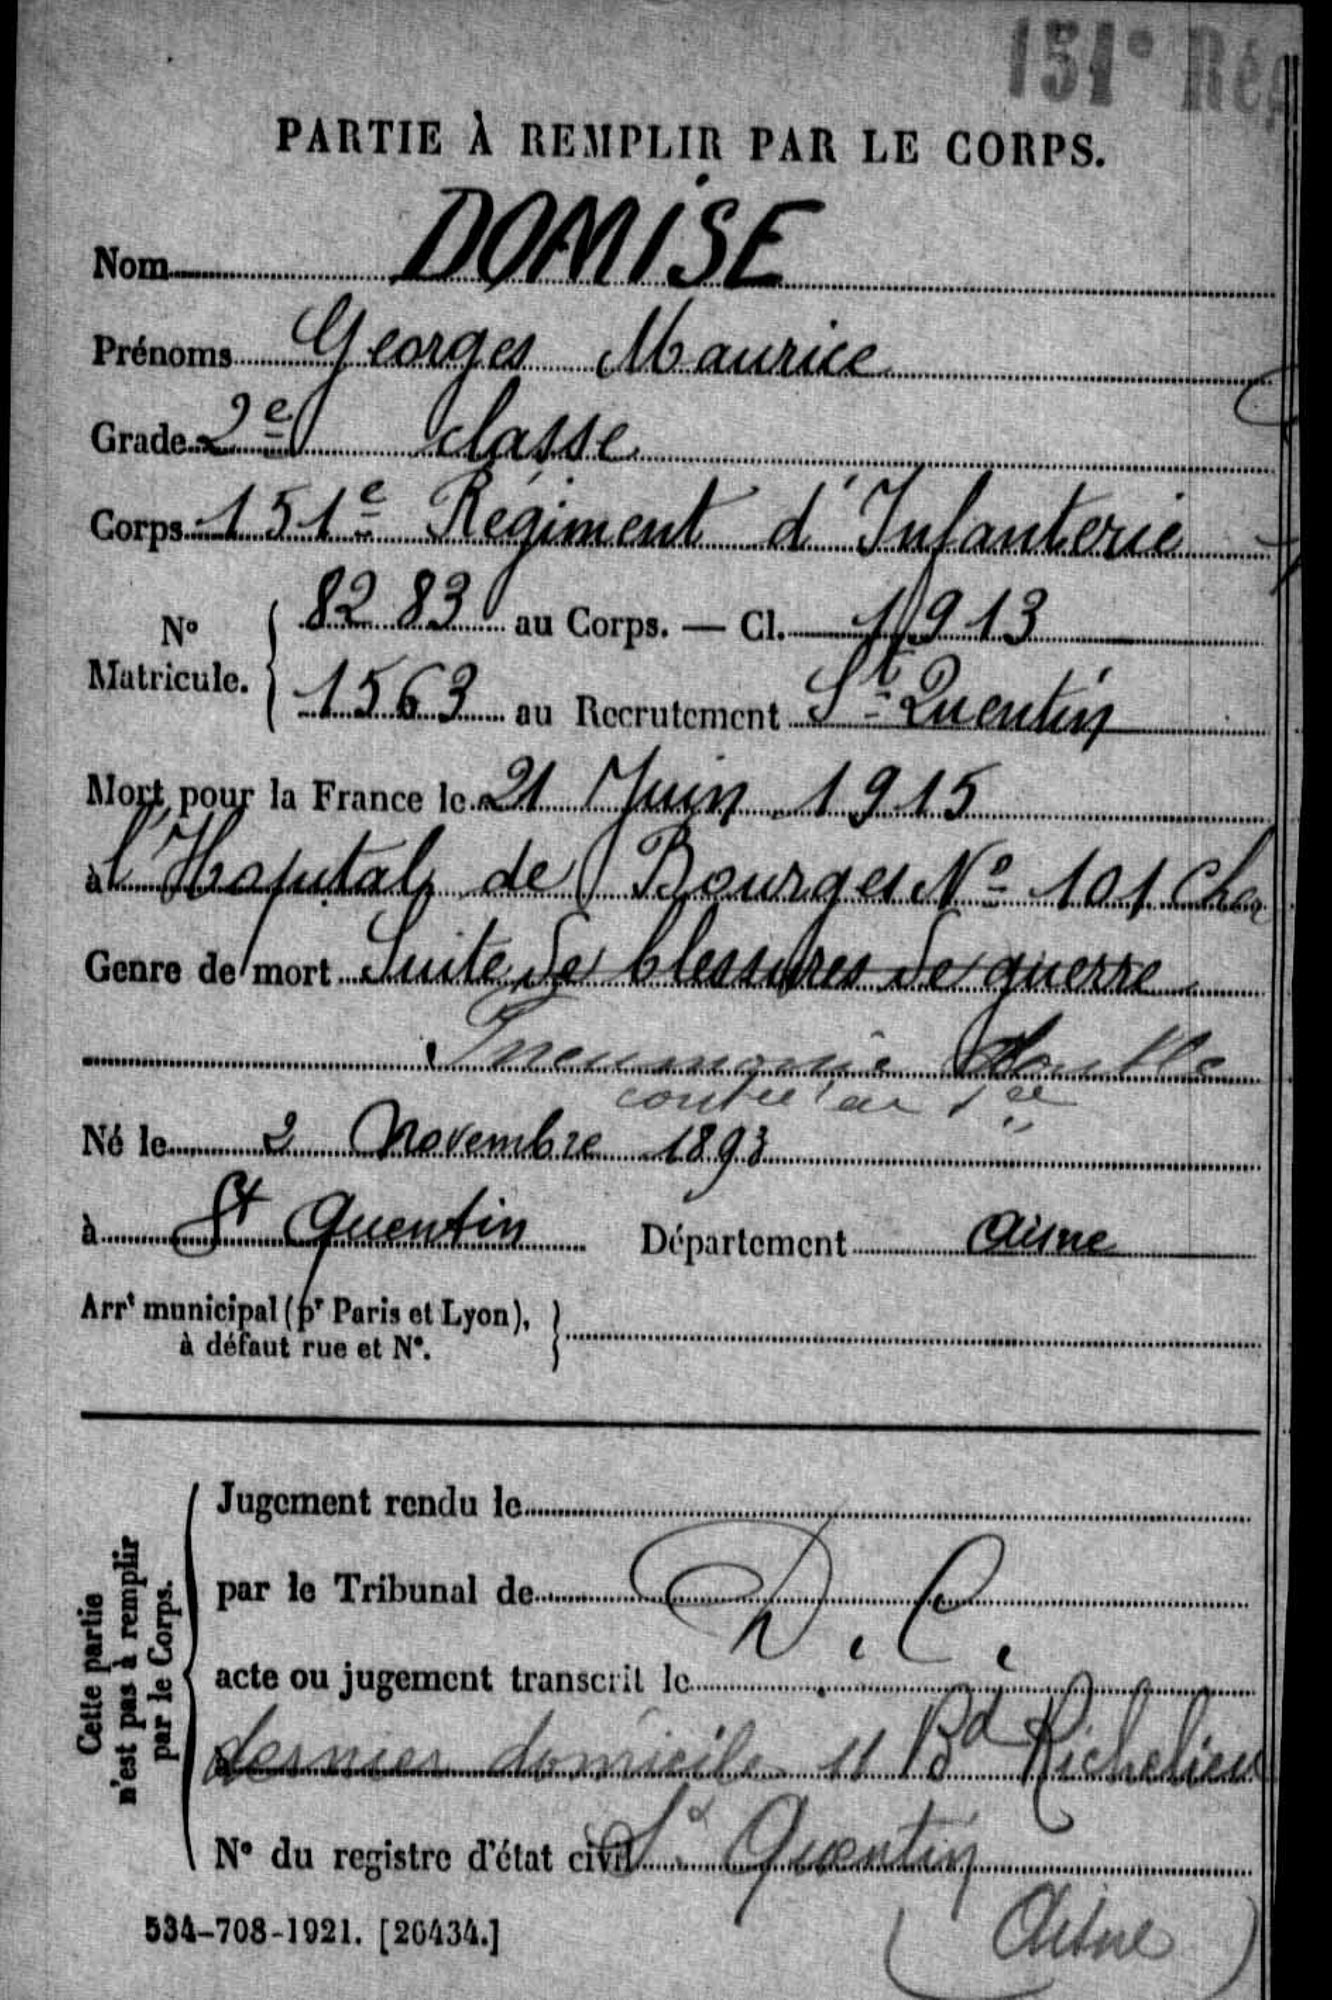 151e Rég
PARTIE À REMPLIR PAR LE CORPS.
Nom DOMISE
Prénoms Georges Maurice
Grade 2e classe
Corps 151e Régiment d'Infanterie
No Matricule. { 82 83 au Corps. — Cl. 1913
1563 au Recrutement St Quentin
Mort pour la France le 21 Juin 1915
à l'Hopital de Bourges No 101 Cher
Genre de mort Suite de blessures de guerre
Pneumonie double
contée au sce
Né le 2 Novembre 1893
à St Quentin Département Aisne
Arrt municipal (pr Paris et Lyon), à défaut rue et No. }
Cette partie n'est pas à remplir par le Corps.
Jugement rendu le
par le Tribunal de D. C.
acte ou jugement transcrit le
dernier domicile 11 Bd Richelieu
No du registre d'état civil St Quentin
(Aisne)
534-708-1921. [26434.]